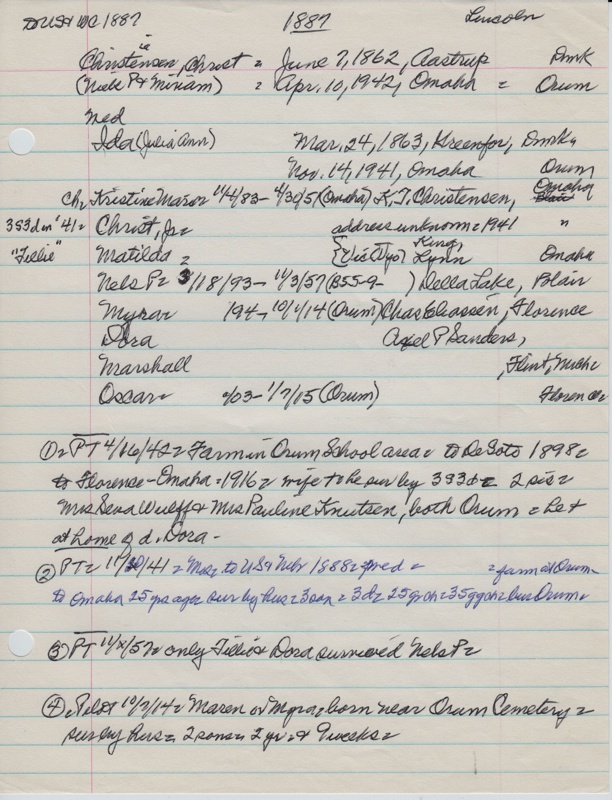 DUSA WC 1887 1887 Lincoln
ie
Christensen, Christ = June 7, 1862, Aastrup Dmk
(Niels P & Miriam) = Apr. 10, 1942, Omaha = Orum
med
Ida (Julia Ann) Mar. 24, 1863, Dmk
Nov. 14, 1941, Omaha Orum
Omaha
ch, Kristine Maria 1/4/83 - 4/30/5 (Omaha) K.T. Christensen, Blair
3S3d in '41 = Christ, Jr = address unknown = 1941 "
King,
"Tillie" Matilda = Lynn Omaha
Nels P = 3/18/93 - 11/3/57 (B55-9- ) Della Lake, Blair
Myra = '94 - 10/1/14 (Orum) Chas Eliassen, Florence
Dora Axel P Sanders,
Marshall , Flint, Mich =
Oscar = 9/03 - 1/7/15 (Orum) Florence =
① = PT 4/16/42 = Farm in Orum School area = to DeSoto 1898 =
to Florence - Omaha = 1916 = wife + he sur by 3S3d = 2 sis =
Mrs Sena Wulff & Mrs Pauline Knutsen, both Orum = he +
at home of d. Dora -
② PT = 11/20/41 = to US & Nebr 1888 = = farm at Orum =
to Omaha 25 yrs ago = sur by hus = 3 son = 3d = 25 grch = 35 ggch = bur Orum =
③ PT only Tillie & Dora survived Nels P =
④ = Pilot 10/7/14 = Maren or Myra = born near Orum Cemetery =
sur by hus = 2 sons = 2 yr = & 9 weeks =